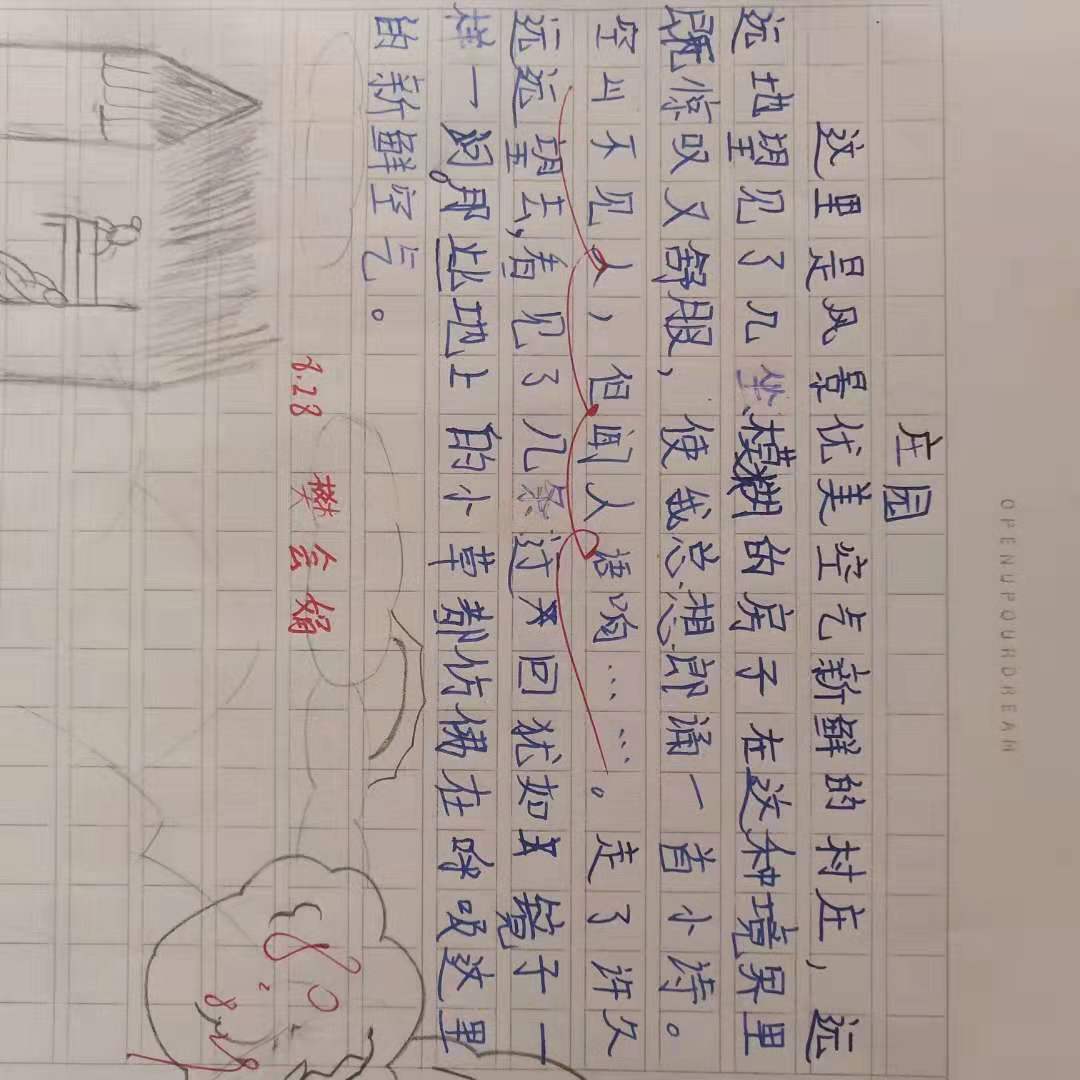 OPENUPOURDREAM
庄园
这里是风景优美空气新鲜的村庄,远
远地望见了几坐模糊的房子在这种境界里
既惊叹又舒服,使我总想郎诵一首小诗。
空山不见人,但闻人语响……。走了许久
远远望去,看见了几条过来回犹如镜子一
样一闪。那让地上的小草都仿佛在呼吸这里
的新鲜空气。
8.28 樊会娟